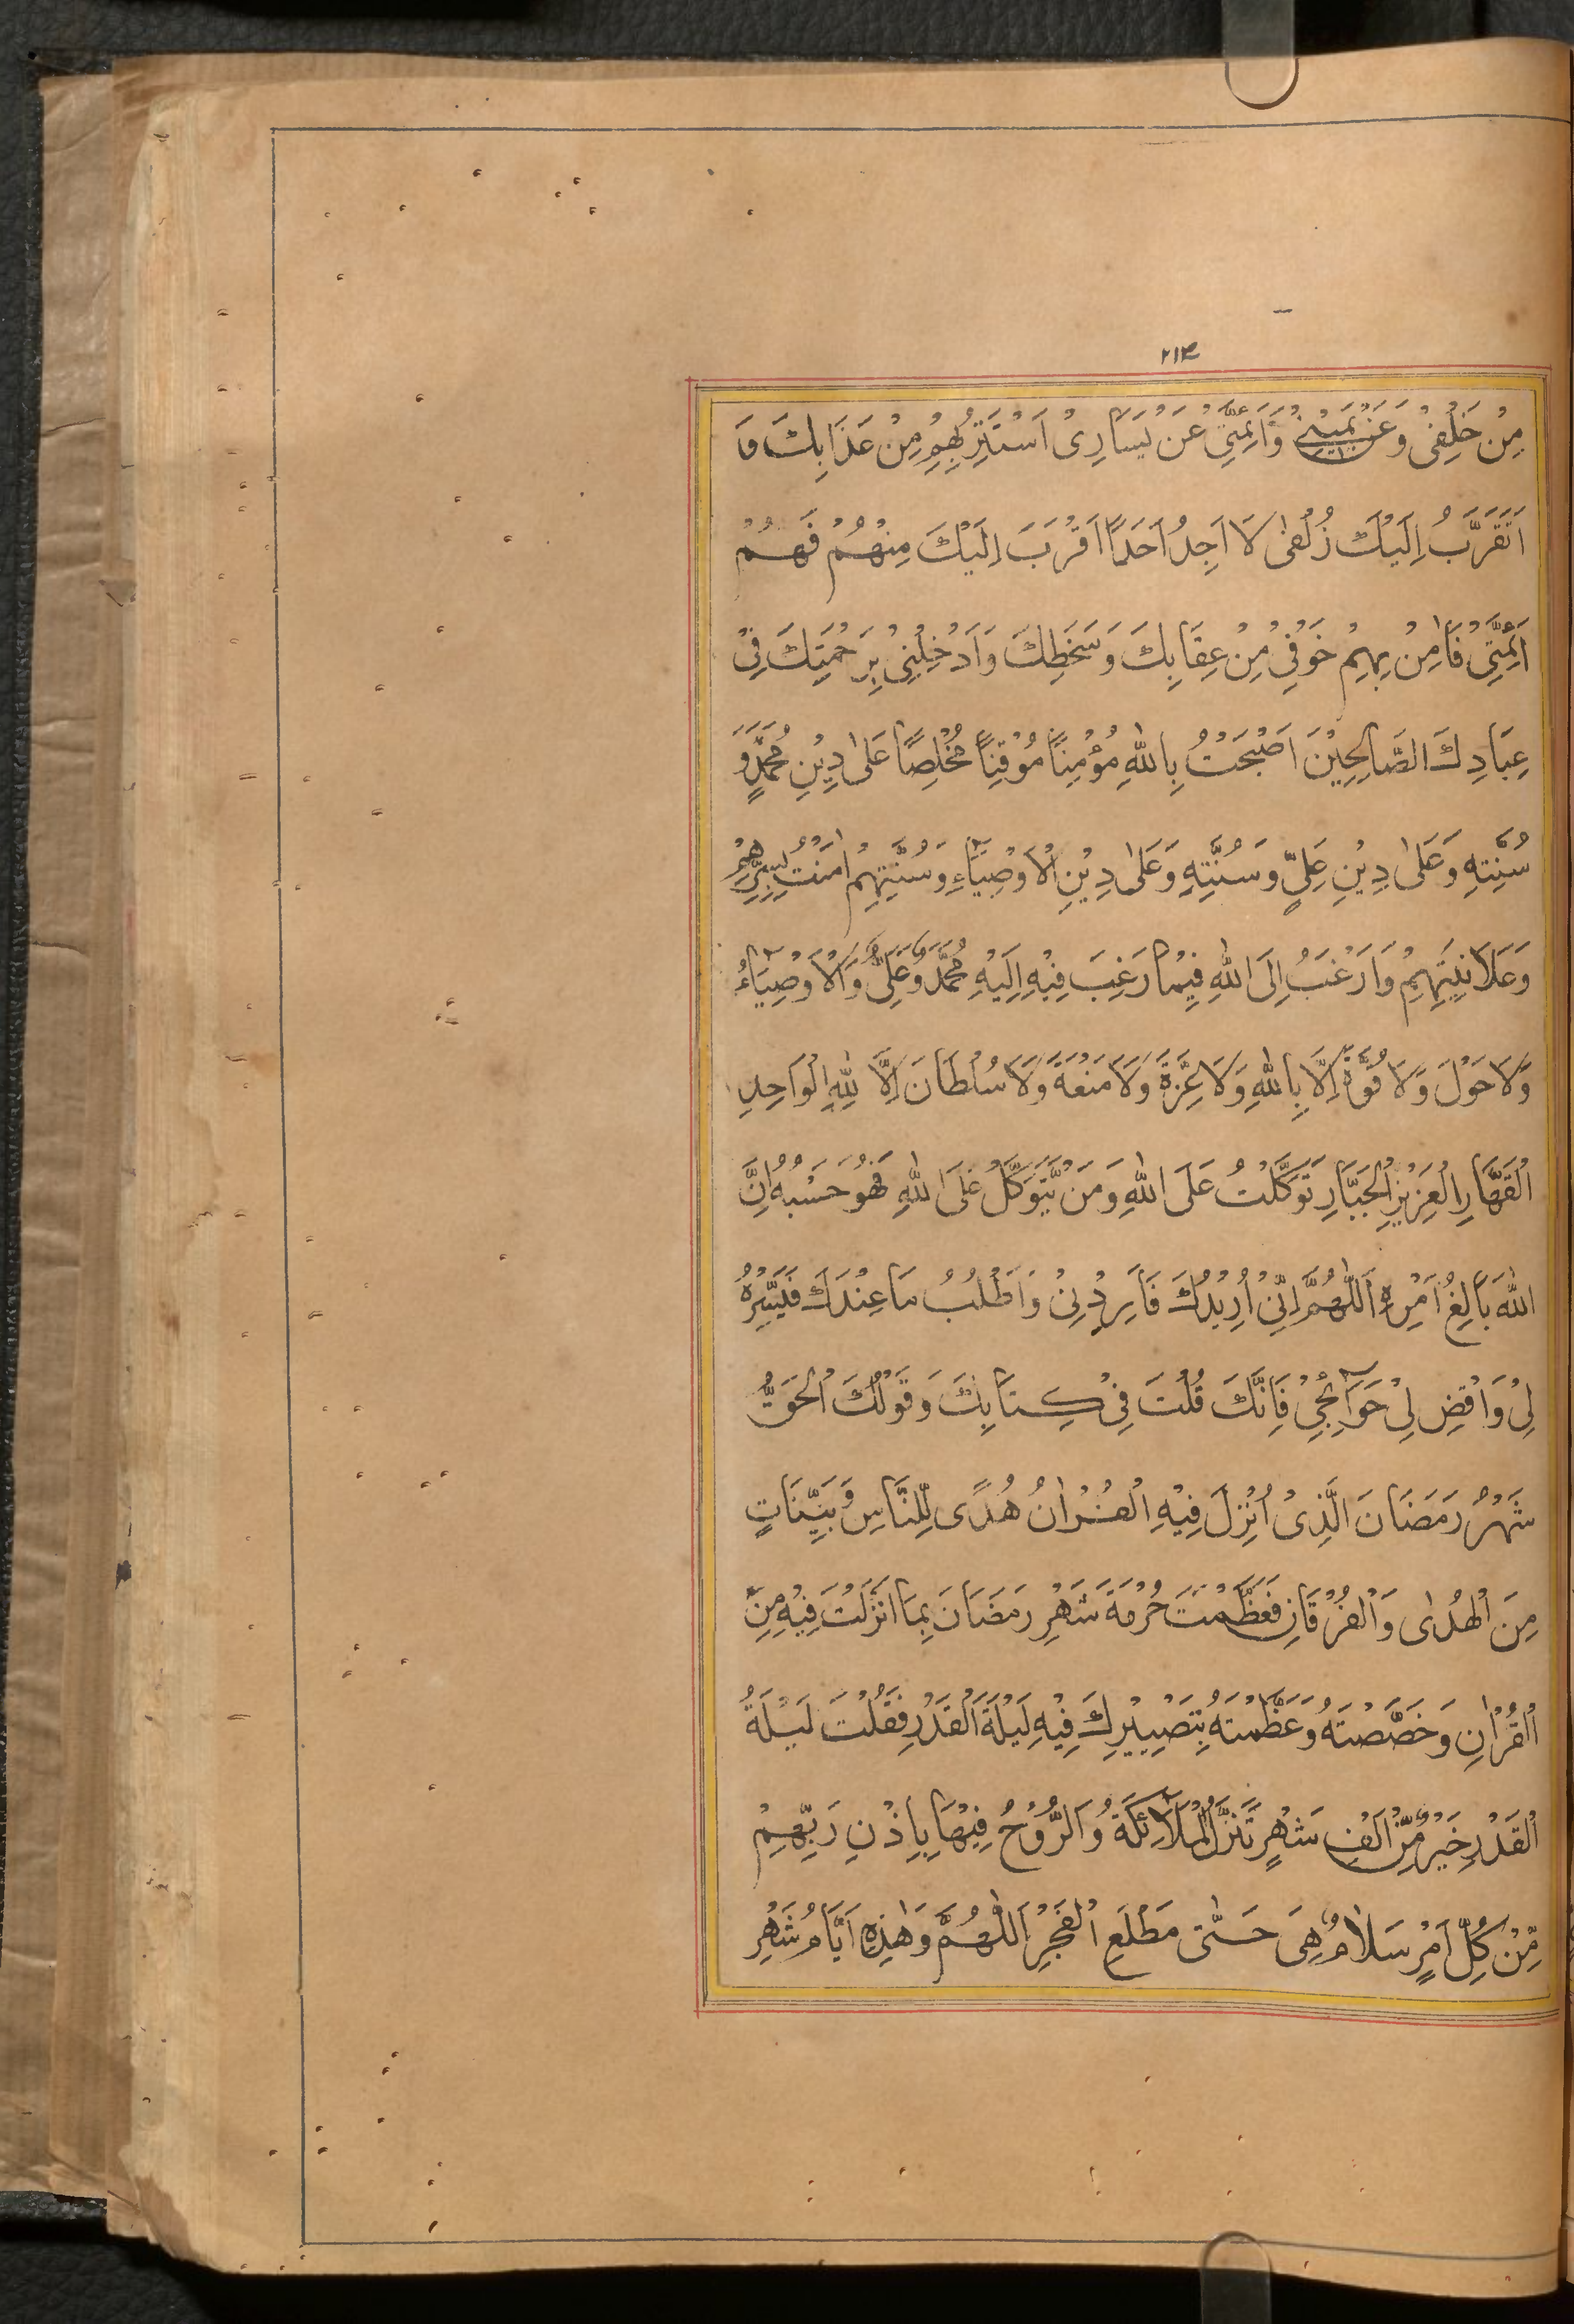 ٢١٤
مِنْ خَلْفِیْ وَ عَنْ یَمِیْنِیْ وَ اَئِمَّتِیْ عَنْ یَسَارِیْ اَسْتَتِرُ بِهِمْ مِنْ عَذَابِكَ وَ
اَتَقَرَّبُ اِلَیْكَ زُلْفٰی لَا اَجِدُ اَحَدًا اَقْرَبَ اِلَیْكَ مِنْهُمْ فَهُمْ
اَئِمَّتِیْ فَاٰمِنْ بِهِمْ خَوْفِیْ مِنْ عِقَابِكَ وَ سَخَطِكَ وَ اَدْخِلْنِیْ بِرَحْمَتِكَ فِیْ
عِبَادِكَ الصَّالِحِیْنَ اَصْبَحْتُ بِاللّٰهِ مُؤْمِنًا مُوْقِنًا مُخْلِصًا عَلٰی دِیْنِ مُحَمَّدٍ وَ
سُنَّتِهٖ وَ عَلٰی دِیْنِ عَلِیٍّ وَ سُنَّتِهٖ وَ عَلٰی دِیْنِ الْاَوْصِیَآءِ وَ سُنَّتِهِمْ اٰمَنْتُ بِسِرِّهِمْ
وَ عَلَانِیَتِهِمْ وَ اَرْغَبُ اِلَی اللّٰهِ فِیْمَا رَغِبَ فِیْهِ اِلَیْهِ مُحَمَّدٌ وَ عَلِیٌّ وَ الْاَوْصِیَآءُ
وَ لَا حَوْلَ وَ لَا قُوَّةَ اِلَّا بِاللّٰهِ وَ لَا عِزَّةَ وَ لَا مَنْعَةَ وَ لَا سُلْطَانَ اِلَّا لِلّٰهِ الْوَاحِدِ
الْقَهَّارِ الْعَزِیْزِ الْجَبَّارِ تَوَكَّلْتُ عَلَی اللّٰهِ وَ مَنْ یَّتَوَكَّلْ عَلَی اللّٰهِ فَهُوَ حَسْبُهٗ اِنَّ
اللّٰهَ بَالِغُ اَمْرِهٖ اَللّٰهُمَّ اِنِّیْ اُرِیْدُكَ فَاَرِدْنِیْ وَ اَطْلُبُ مَا عِنْدَكَ فَیَسِّرْهُ
لِیْ وَ اقْضِ لِیْ حَوَآئِجِیْ فَاِنَّكَ قُلْتَ فِیْ كِتَابِكَ وَ قَوْلُكَ الْحَقُّ
شَهْرُ رَمَضَانَ الَّذِیْ اُنْزِلَ فِیْهِ الْقُرْاٰنُ هُدًی لِّلنَّاسِ وَ بَیِّنَاتٍ
مِنَ الْهُدٰی وَ الْفُرْقَانِ فَعَظَّمْتَ حُرْمَةَ شَهْرِ رَمَضَانَ بِمَا اَنْزَلْتَ فِیْهِ مِنَ
الْقُرْاٰنِ وَ خَصَّصْتَهٗ وَ عَظَّمْتَهٗ بِتَصْیِیْرِكَ فِیْهِ لَیْلَةَ الْقَدْرِ فَقُلْتَ لَیْلَةُ
الْقَدْرِ خَیْرٌ مِّنْ اَلْفِ شَهْرٍ تَنَزَّلُ الْمَلَآئِكَةُ وَ الرُّوْحُ فِیْهَا بِاِذْنِ رَبِّهِمْ
مِّنْ كُلِّ اَمْرٍ سَلَامٌ هِیَ حَتّٰی مَطْلَعِ الْفَجْرِ اَللّٰهُمَّ وَ هٰذِهٖ اَیَّامُ شَهْرِ